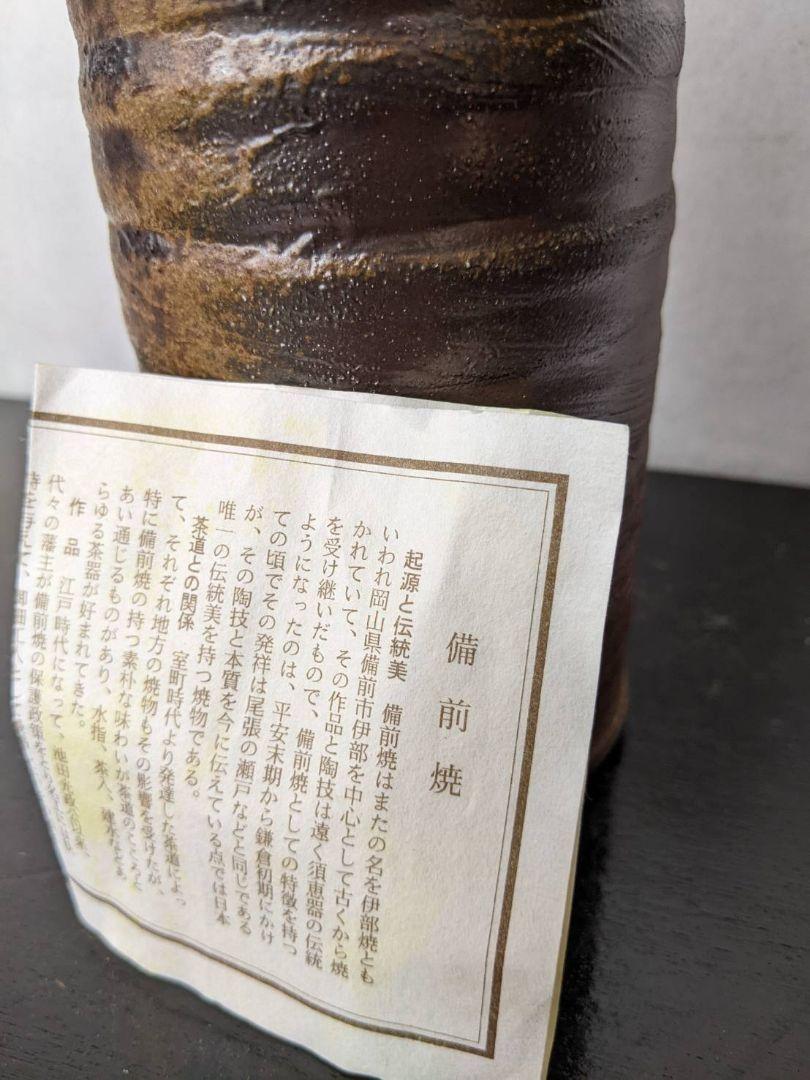 備前焼
起源と伝統美　備前焼はまたの名を伊部焼とも
いわれ岡山県備前市伊部を中心として古くから焼
かれていて、その作品と陶技は遠く須恵器の伝統
を受け継いだもので、備前焼としての特徴を持つ
ようになったのは、平安末期から鎌倉初期にかけ
ての頃でその発祥は尾張の瀬戸などと同じである
が、その陶技と本質を今に伝えている点では日本
唯一の伝統美を持つ焼物である。
茶道との関係　室町時代より発達した茶道によっ
て、それぞれ地方の焼物もその影響を受けたが、
特に備前焼の持つ素朴な味わいが茶道のこころと
あい通じるものがあり、水指、茶入、建水などあ
らゆる茶器が好まれてきた。
作品　江戸時代になって、池田光政公以来、
代々の藩主が備前焼の保護政策を